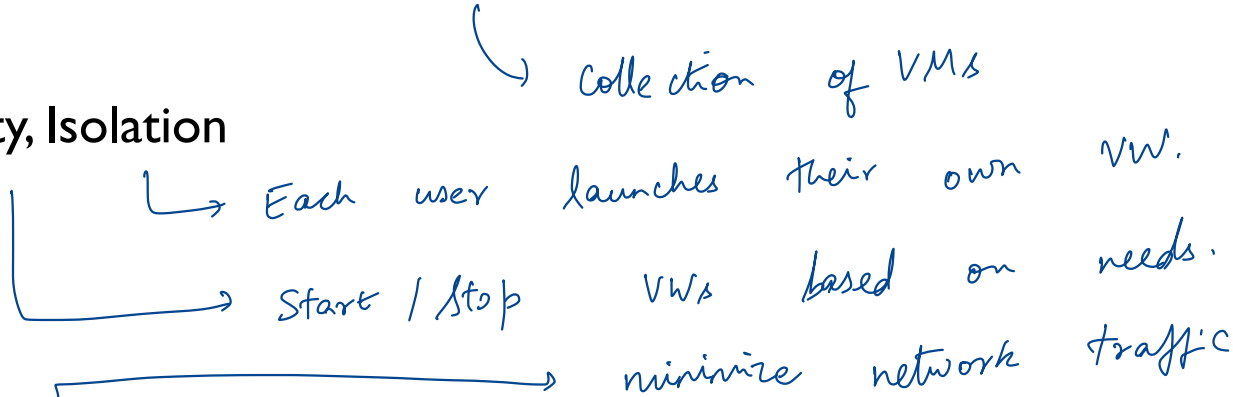 Collection of VMs
ty, Isolation
Each user launches their own VW.
Start / Stop VWs based on needs.
minimize network traffic